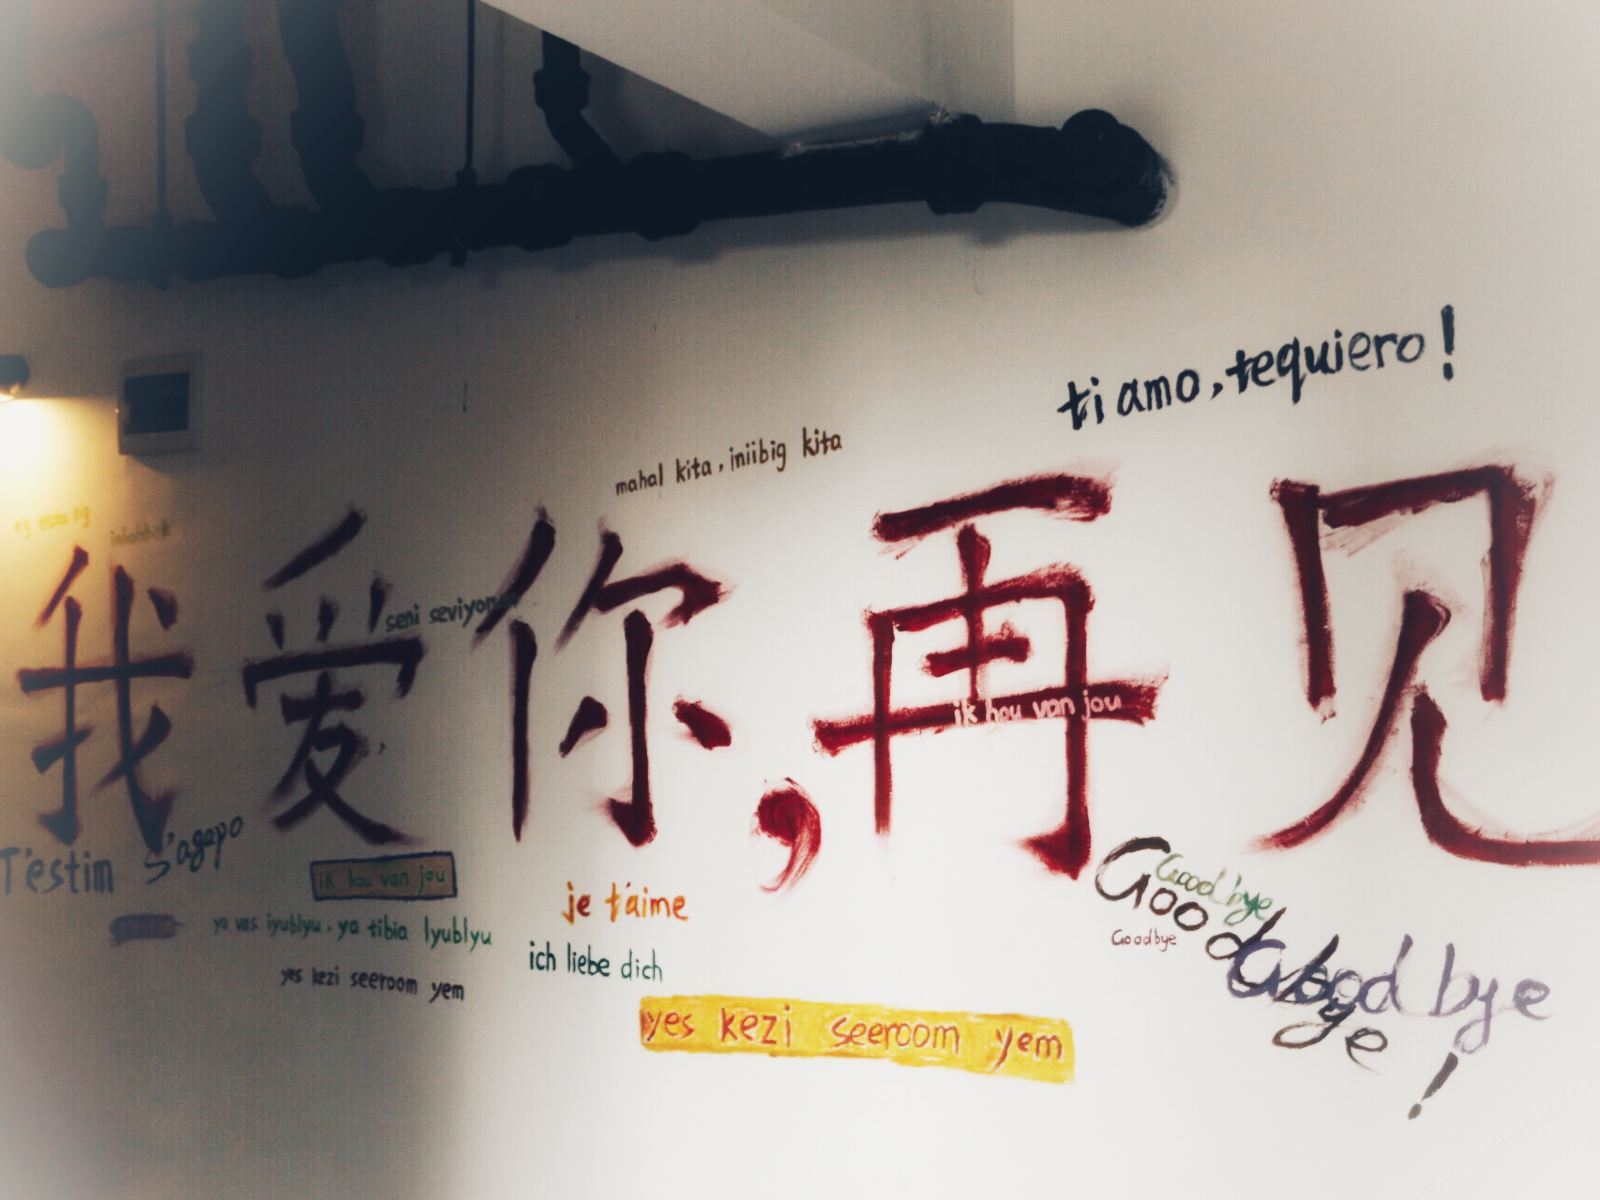 ti amo, tequiero!
mahal kita, iniibig kita
我爱你,再见
seni seviyor
ik hou van jou
T'estim
s'agapo
ik hou van jou
je t'aime
yo vas iyublyu. ya tibia lyublyu
ich liebe dich
yes kezi seeroom yem
yes kezi seeroom yem
Goodbye!
Goodbye
Goodbye
Good bye